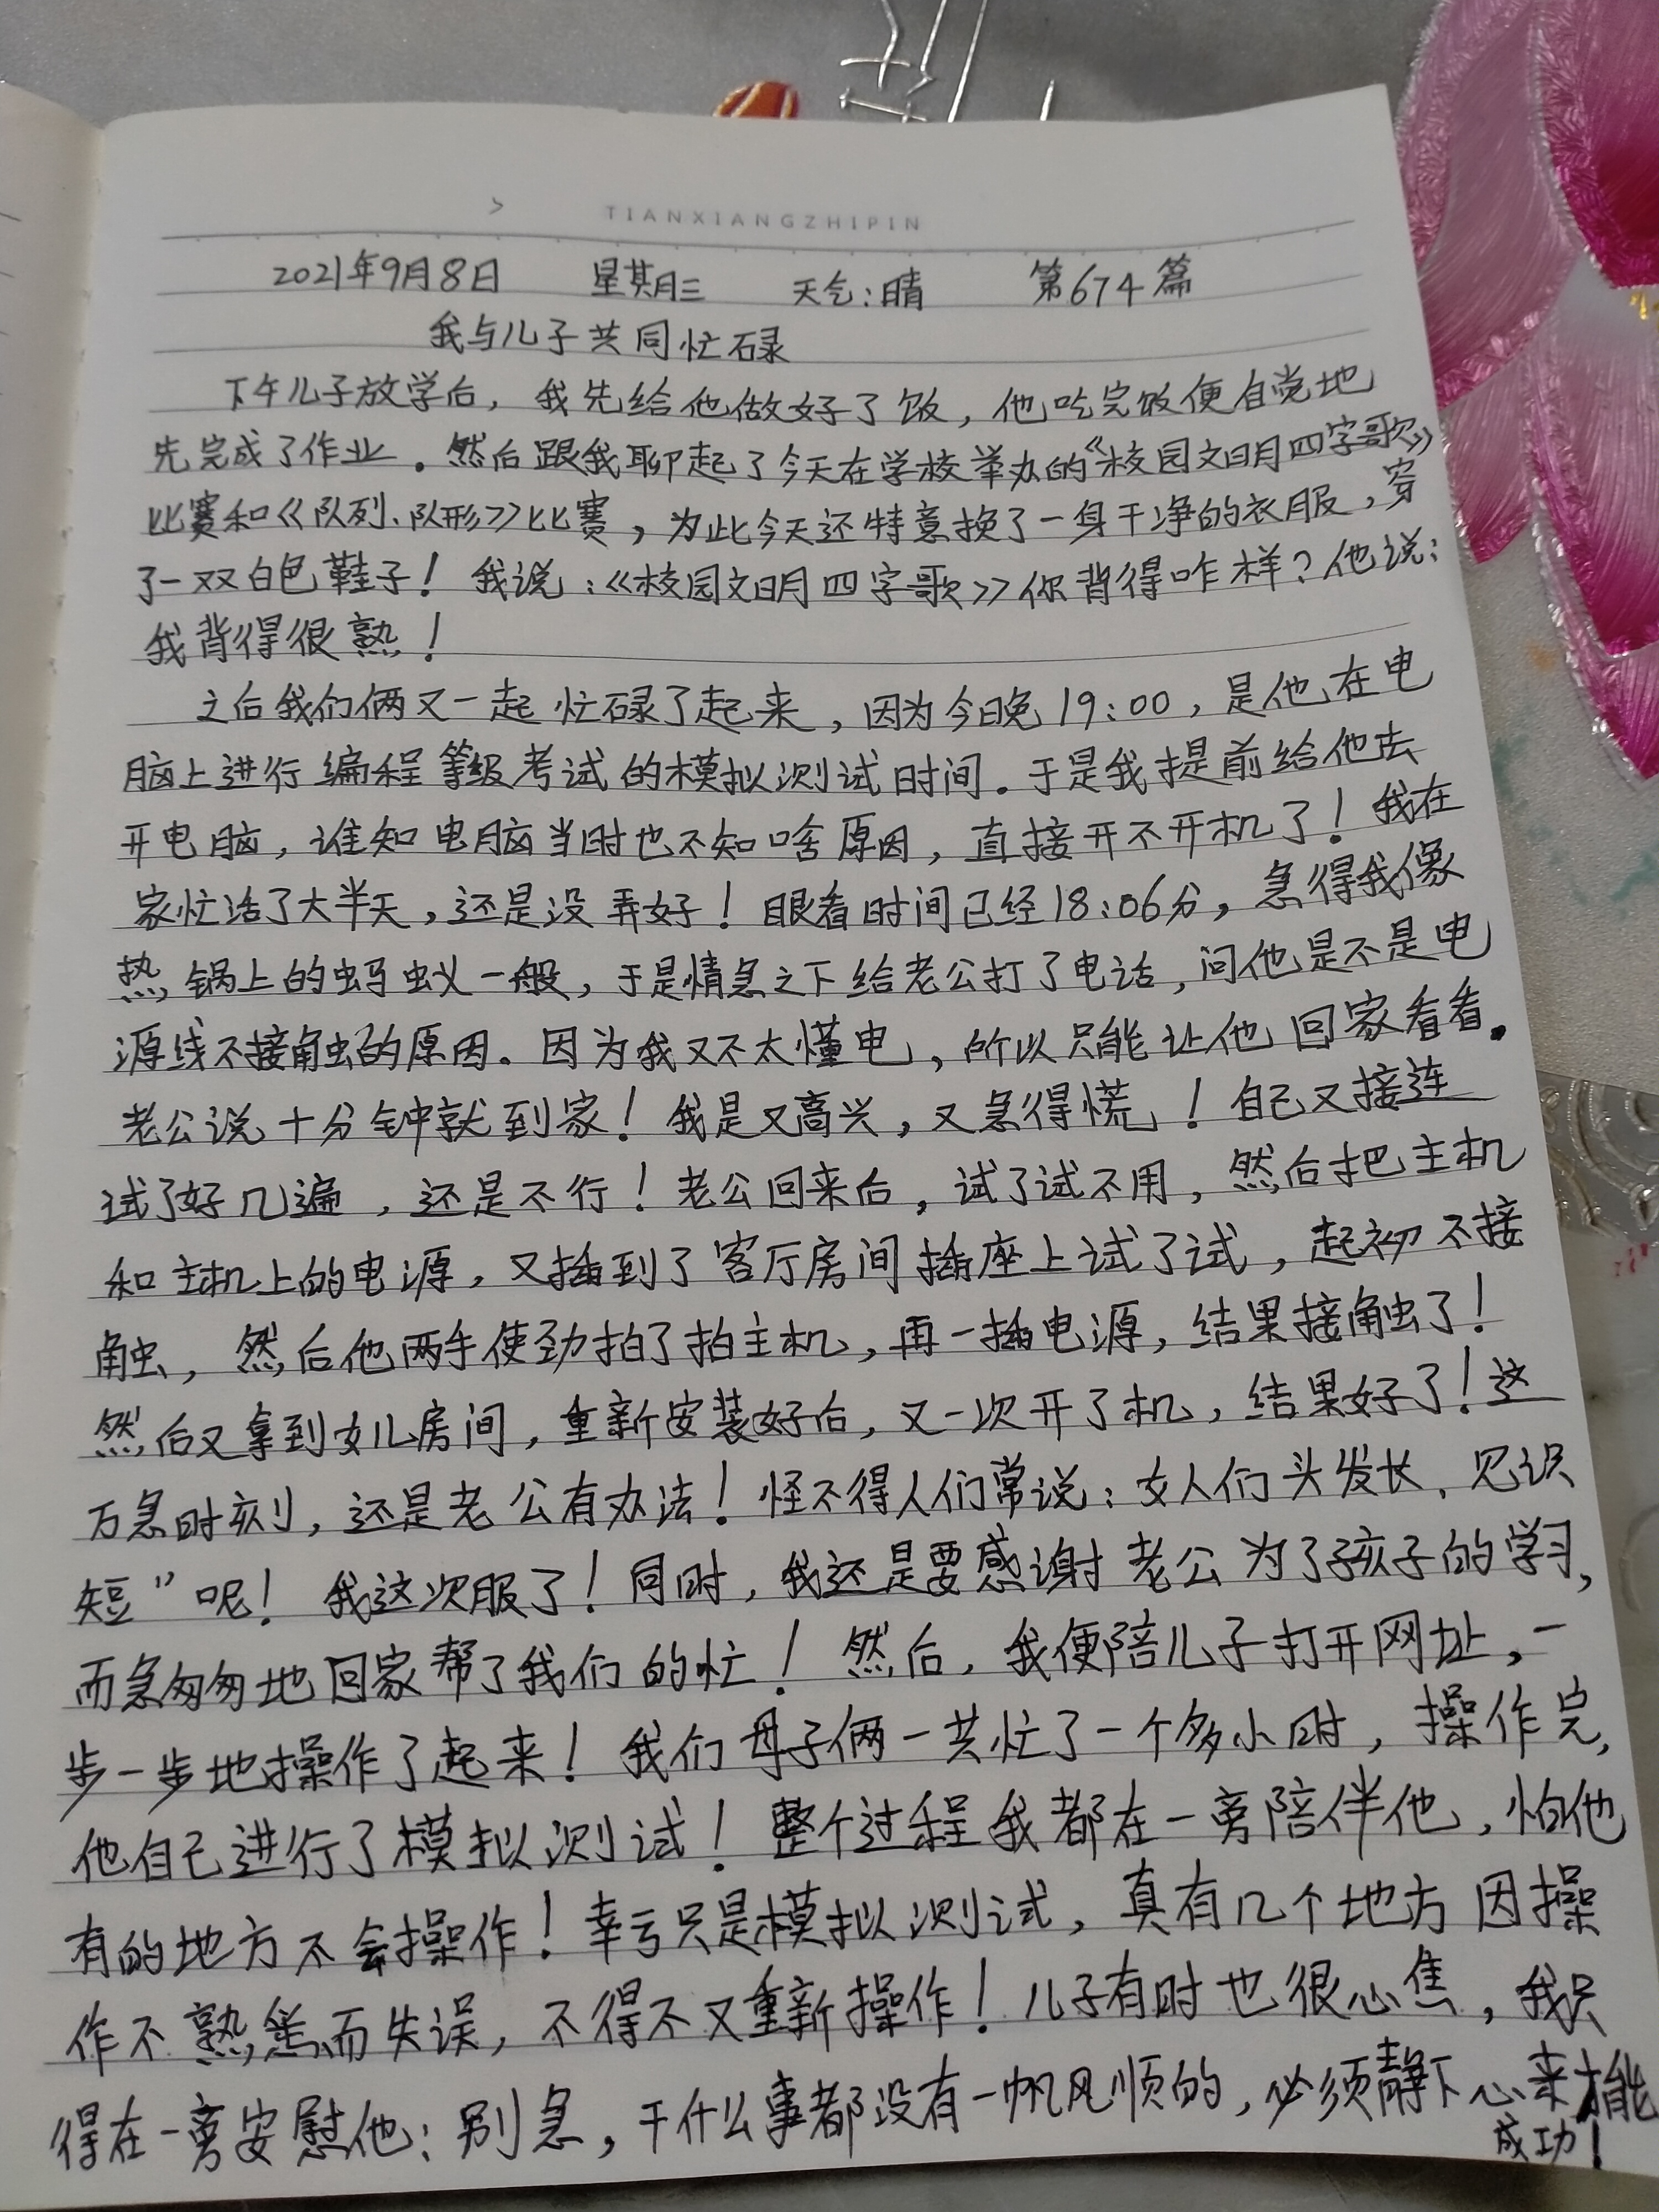 TIANXIANGZHIPIN
2021年9月8日 星期三 天气:晴 第674篇
我与儿子共同忙碌
下午儿子放学后，我先给他做好了饭，他吃完饭便自觉地
先完成了作业。然后跟我聊起了今天在学校举办的《校园文明四字歌》
比赛和《队列、队形》比赛，为此今天还特意换了一身干净的衣服，穿
了一双白色鞋子！我说：《校园文明四字歌》你背得咋样？他说：
我背得很熟！
之后我们俩又一起忙碌了起来，因为今晚19:00，是他在电
脑上进行编程等级考试的模拟测试时间。于是我提前给他去
开电脑，谁知电脑当时也不知啥原因，直接开不开机了！我在
家忙活了大半天，还是没弄好！眼看时间已经18:06分，急得我像
热锅上的蚂蚁一般，于是情急之下给老公打了电话，问他是不是电
源线不接触的原因。因为我又不太懂电，所以只能让他回家看看。
老公说十分钟就到家！我是又高兴，又急得慌！自己又接连
试了好几遍，还是不行！老公回来后，试了试不用，然后把主机
和主机上的电源，又插到了客厅房间插座上试了试，起初不接
触，然后他两手使劲拍了拍主机，再一插电源，结果接触了！
然后又拿到女儿房间，重新安装好后，又一次开了机，结果好了！这
万急时刻，还是老公有办法！怪不得人们常说：女人们头发长，见识
短”呢！我这次服了！同时，我还是要感谢老公为了孩子的学习，
而急匆匆地回家帮了我们的忙！然后，我便陪儿子打开网址，一
步一步地操作了起来！我们母子俩一共忙了一个多小时，操作完，
他自己进行了模拟测试！整个过程我都在一旁陪伴他，怕他
有的地方不会操作！幸亏只是模拟测试，真有几个地方因操
作不熟悉而失误，不得不又重新操作！儿子有时也很心焦，我只
得在一旁安慰他：别急，干什么事都没有一帆风顺的，必须静下心来才能
成功！